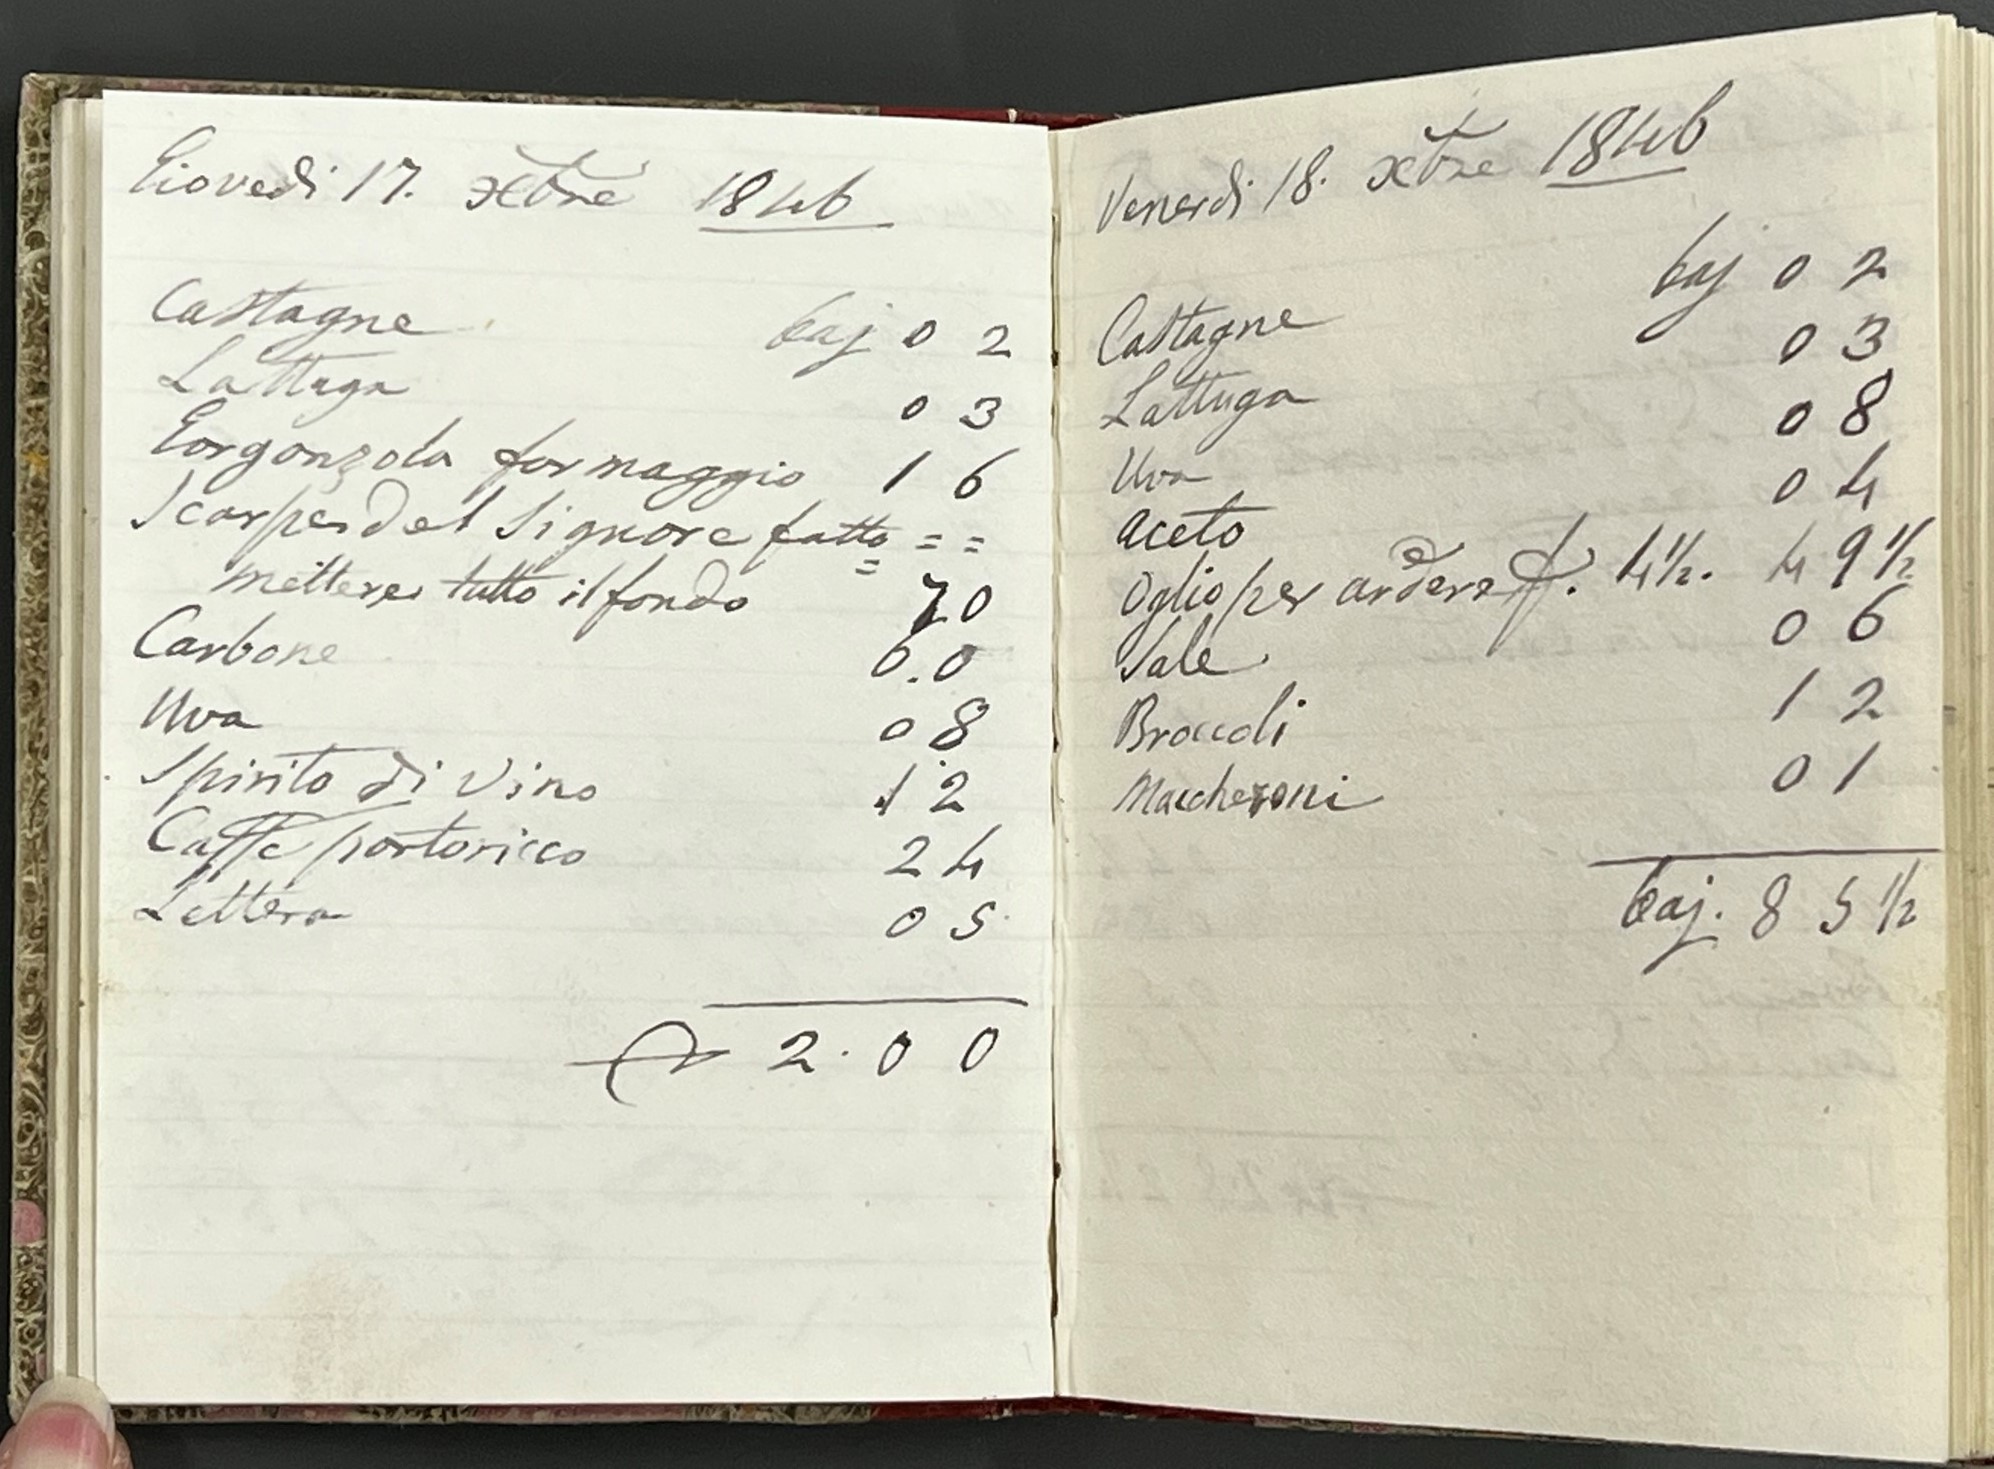 Giovedi 17. xbre 1846
Castagne baj 0 2
Lattuga 0 3
Gorgonzola formaggio 1 6
Scarpe del Signore fatto = =
mettere tutto il fondo = 70
Carbone 6.0
Uva 0 8
Spirito di Vino 12
Caffe portoricco 2 4
Lettera 0 5
2.00
Venerdi 18. xbre 1846
Castagne baj 0 2
Lattuga 0 3
Uva 0 8
aceto 0 4
Oglio per ardere f. 4 1/2. 4 9 1/2
Sale 0 6
Broccoli 1 2
Maccheroni 0 1
baj. 8 5 1/2